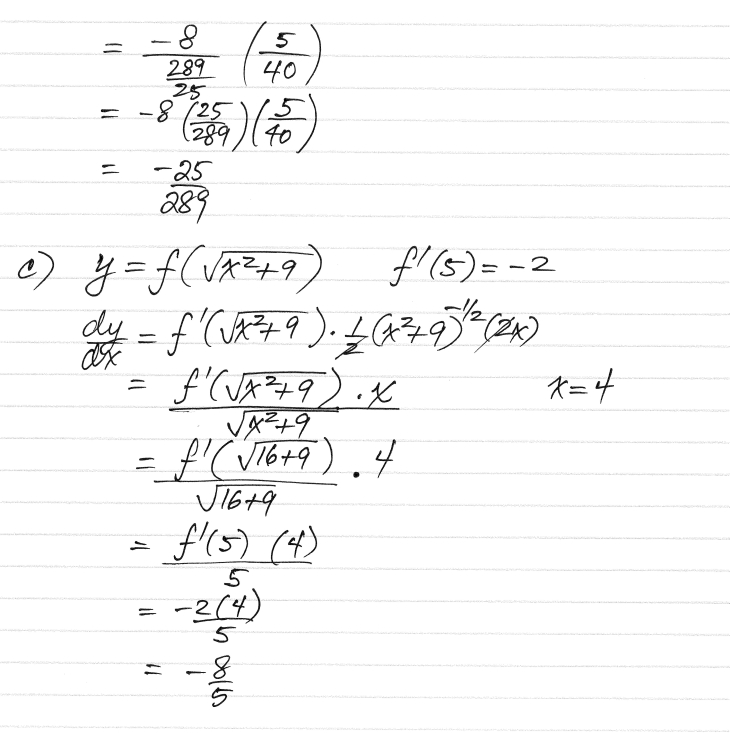 = -8/(289/25) (5/40)
= -8 (25/289)(5/40)
= -25/289
c) y = f(√(x²+9)) f'(5) = -2
dy/dx = f'(√(x²+9)) · 1/2 (x²+9)^(-1/2) (2x)
= f'(√(x²+9)) · x / √(x²+9) x = 4
= f'(√(16+9)) / √(16+9) · 4
= f'(5) (4) / 5
= -2(4)/5
= -8/5